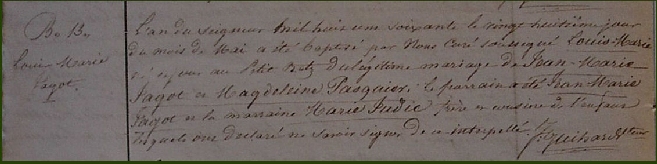 B. 13.
Louis-Marie
Fagot
L'an du Seigneur mil huit cent soixante le vingt huitième jour
du mois de Mai a été baptisé par Nous Curé soussigné Louis-Marie
né ce jour au Petit du légitime mariage de Jean-Marie
Fagot et Magdeleine Pasquier, le parrain a été Jean Marie
Fagot et la marraine Marie frère et cousine de l'enfant
lesquels ont déclaré ne savoir signer de ce interpellé. Guihard